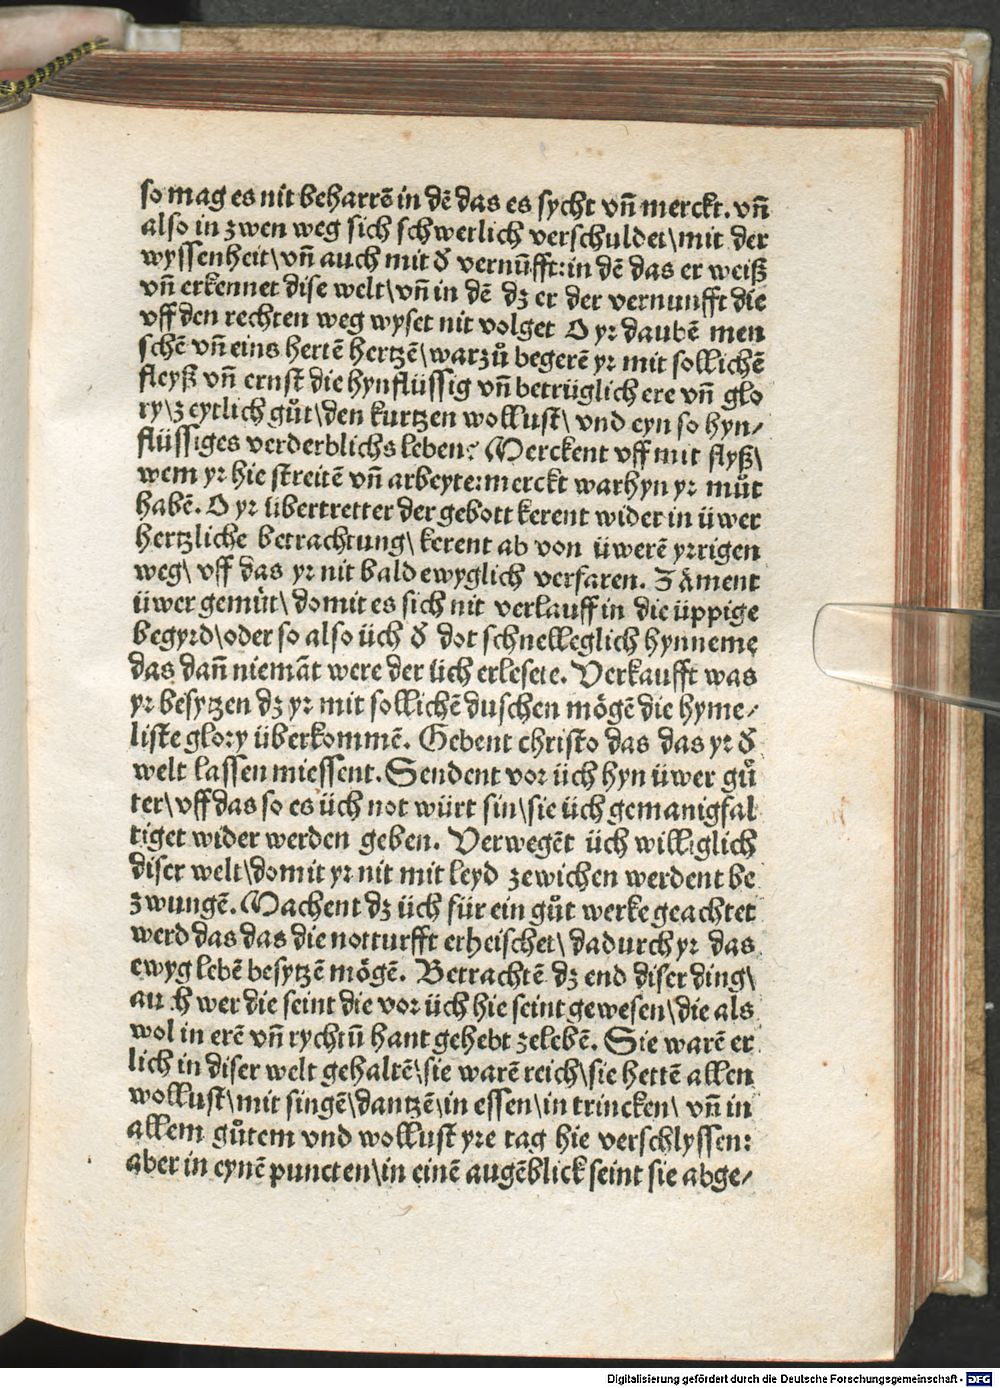 so mag es nit beharrē in dē das es sycht vñ merckt. vñ
also in zwen weg sich schwerlich verschuldet\mit der
wyssenheit\vñ auch mit ð vernūfft:in dē das er weiß
vñ erkennet dise welt\vñ in dē dz er der vernunfft die
vff den rechten weg wyset nit volget O yr daubē men
schē vñ eins hertē hertzē\warzů begerē yr mit sollichē
fleyß vñ ernst die hynflüssig vñ betrüglich ere vñ glo
ry\zeytlich gůt\den kurtzen wollust\ vnd eyn so hyn⸗
flüssiges verderblichs leben? Merckent vff mit flyß\
wem yr hie streitē vñ arbeyte:merckt warhyn yr můt
habē. O yr übertretter der gebott kerent wider in üwer
hertzliche betrachtung\ kerent ab von üwerē yrrigen
weg\ vff das yr nit bald ewyglich verfaren. Zäment
üwer gemüt\ domit es sich nit verlauff in die üppige
begyrd\oder so also üch ð dot schnelleglich hynneme
das dañ niemāt were der üch erlesete. Verkaufft was
yr besytzen dz yr mit sollichē duschen mögē die hyme⸗
liste glory überkommē. Gebent christo das das yr ð
welt lassen miessent. Sendent vor üch hyn üwer gů
ter\vff das so es üch not würt sin\sie üch gemanigfal
tiget wider werden geben. Verwegēt üch williglich
diser welt\domit yr nit mit leyd zewichen werdent be
zwungē. Machent dz üch für ein gůt werke geachtet
werd das das die notturfft erheischet\ dadurch yr das
ewyg lebē besytzē mögē. Betrachtē dz end diser ding\
auch wer die seint die vor üch hie seint gewesen\die als
wol in erē vñ rychtū hant gehebt zelebē. Sie warē er
lich in diser welt gehaltē\sie warē reich\sie hettē allen
wollust\mit singē\dantzē\in essen\in trincken\ vñ in
allem gůtem vnd wollust yre tag hie verschlyssen:
aber in eynē puncten\in einē augēblick seint sie abge⸗
Digitalisierung gefördert durch die Deutsche Forschungsgemeinschaft - DFG